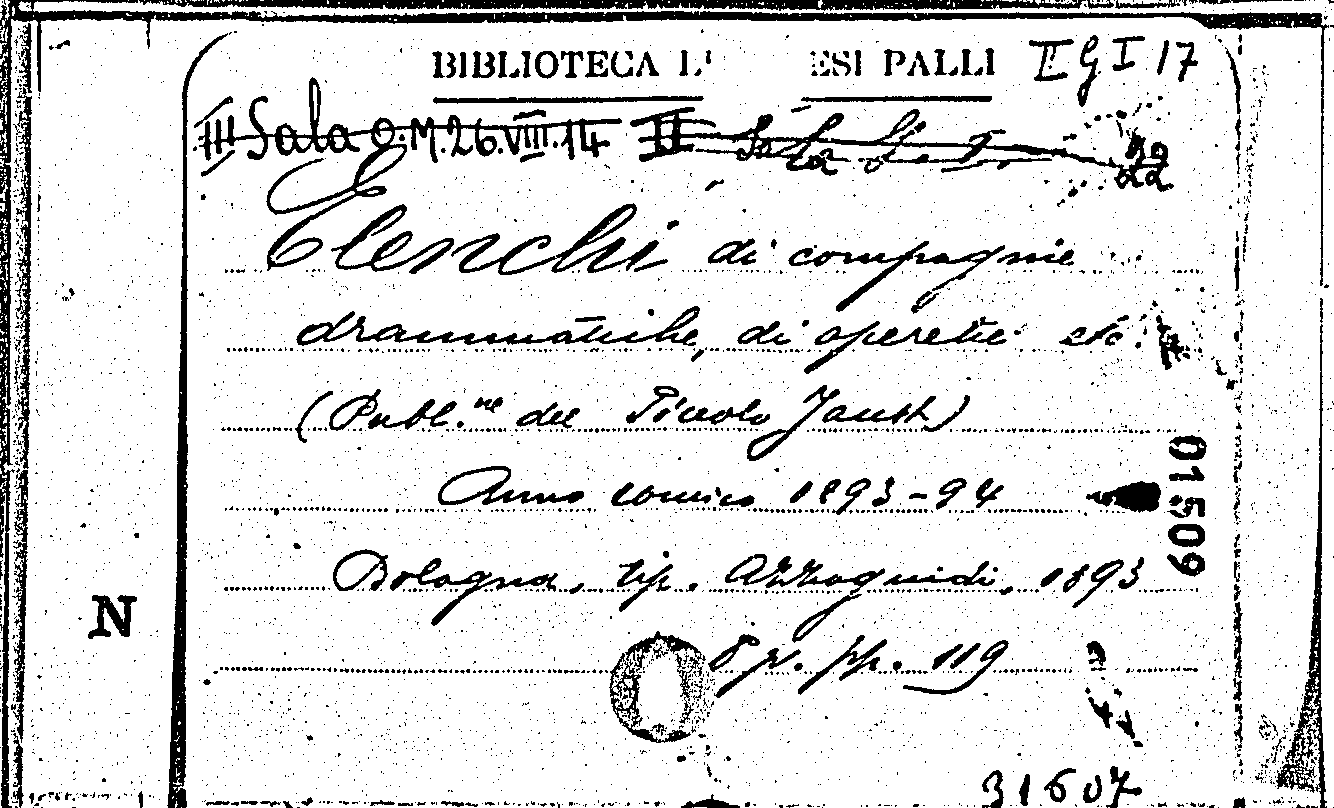 BIBLIOTECA L ESI PALLI II G I 17
III Sala O.M.26.VIII.14 II Sala
Elenchi di compagnie
drammatiche, di operette etc.
(Publ.ne del Piccolo Faust)
Anno comico 1893-94
Bologna, tip. Azzoguidi, 1893
8 p. pp. 119
N
01509
31607